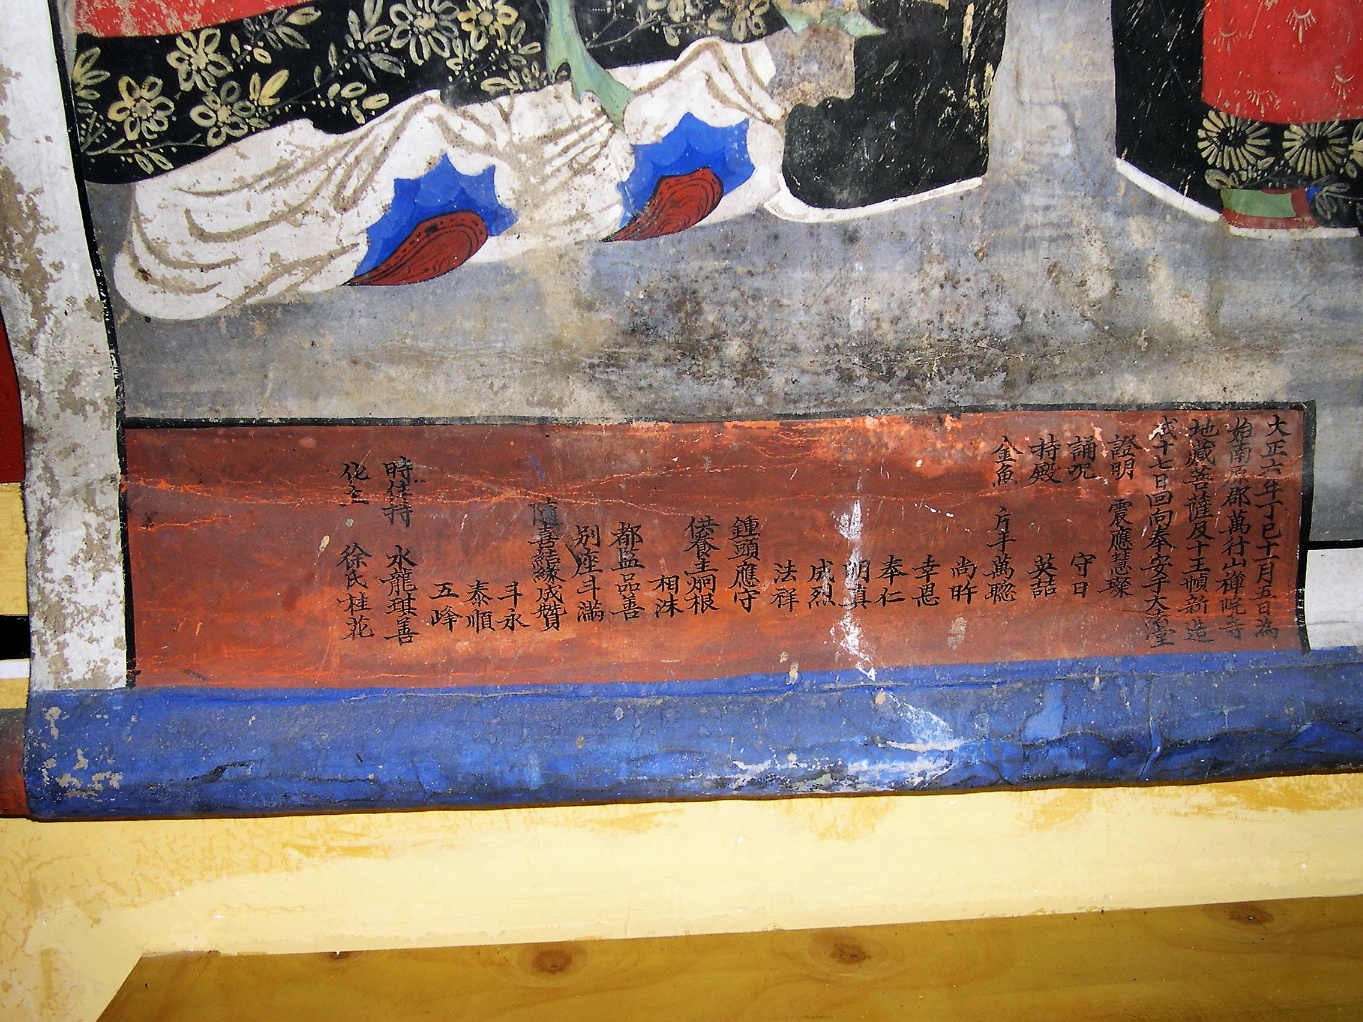 大正六年丁巳十一月五日為
始南原郡萬行山禪院寺
地藏菩薩及十王幀新造
十七日回向奉安于天
證明 震應慧璨
誦呪 守日
持殿 英喆
金魚 片手萬聰
尚昕
幸恩
奉仁
明真
成烈
法祥
鍾頭應守
供養主炯根
相洙
都監品善
別座斗満
隨喜結緣成贊
斗永
泰順
五峰
時住持 水龍琪善
化主 徐氏桂花